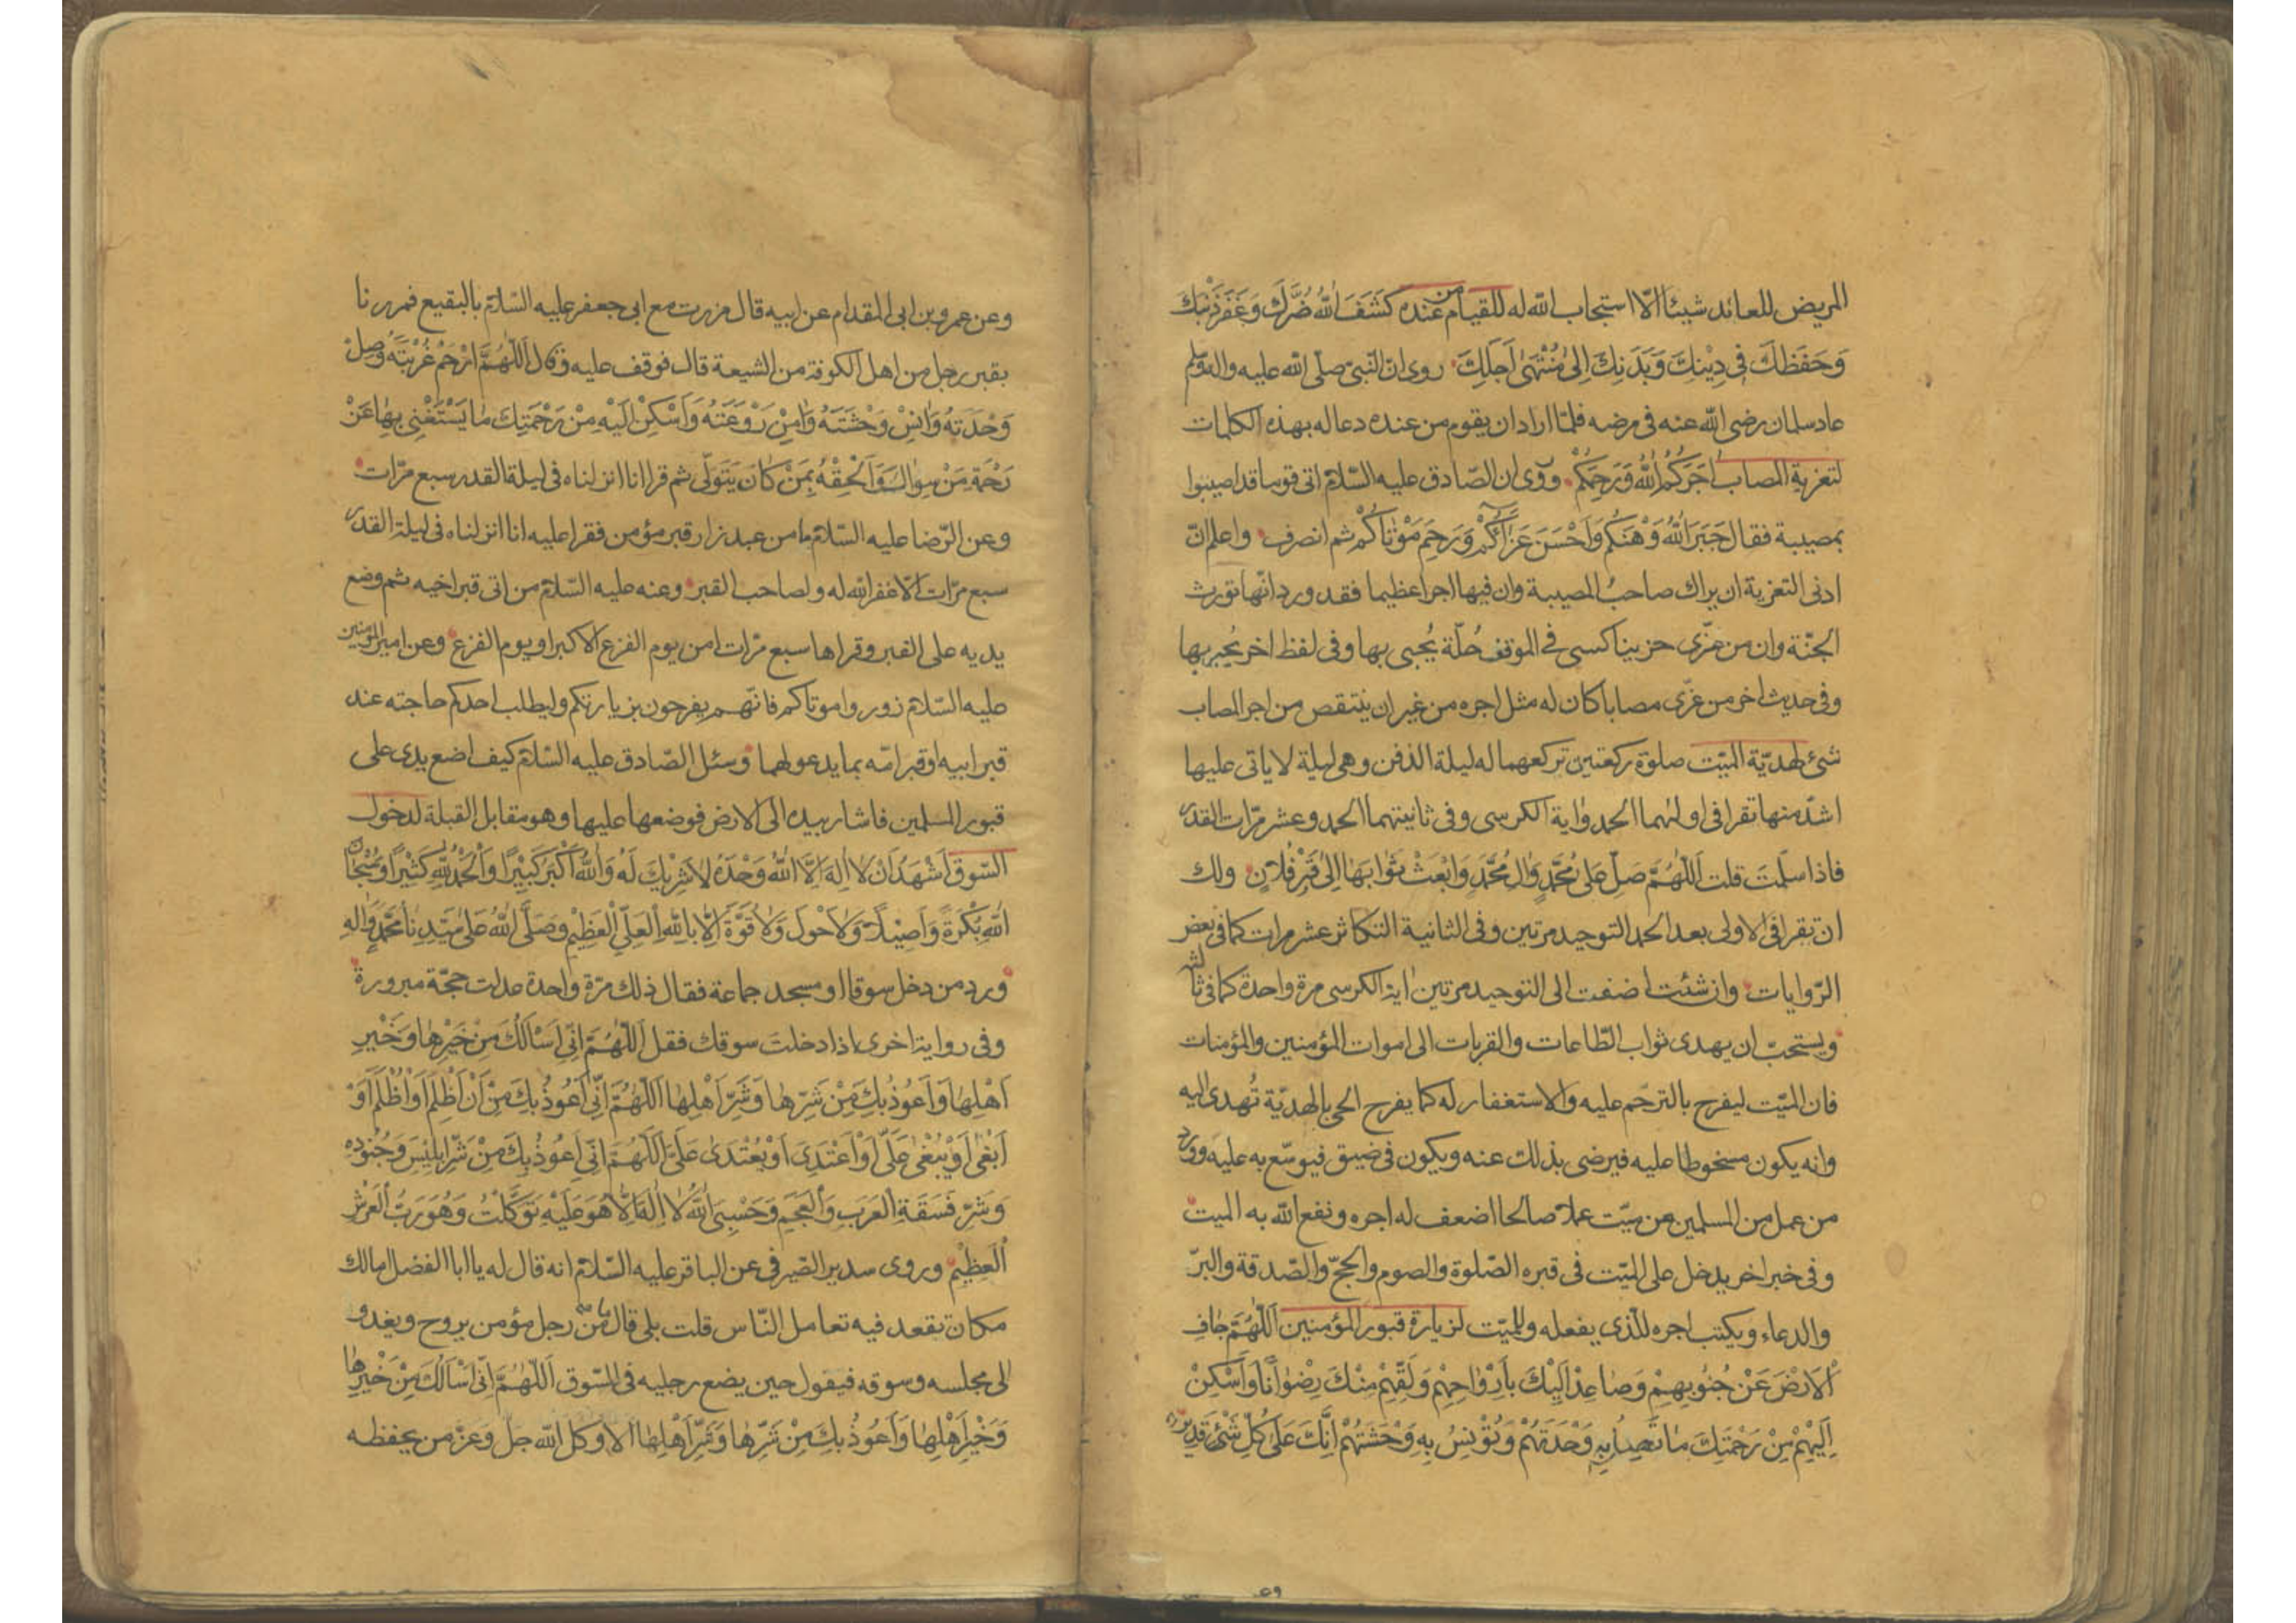 المريض للعائد شيئا الّا استجاب الله له للقيام من عنده كَشَفَ اللهُ ضُرَّكَ وَغَفَرَ ذَنْبَكَ
وَحَفَظَكَ فِي دِيْنِكَ وَبَدَنِكَ اِلىٰ مُنْتَهىٰ اَجَلِكَ روى انّ النّبىّ صلّى الله عليه واله وسلم
عاد سلمان رضى الله عنه فى مرضه فلمّا اراد ان يقوم من عنده دعا له بهذه الكلمات
لتعزية المصاب اٰجَرَكُمُ اللهُ وَرَحِمَكُمْ وروى ان الصّادق عليه السّلام اتى قوما قد اصيبوا
بمصيبة فقال جَبَرَ اللهُ وَهْنَكُم وَاَحْسَنَ عَزَاكُمْ وَرَحِمَ مَوْتٰاكُمْ ثم انصرف واعلم انّ
ادنى التعزية ان يراك صاحبُ المصيبة وان فيها اجرا عظيما فقد ورد انّها تورث
الجنّة وان من عزّى حزينا كسى فى الموقف حُلّة يُحبى بها وفى لفظ اخر يُحبر بها
وفى حديث اخر من عزّى مصابا كان له مثل اجره من غير ان ينتقص من اجر المصاب
شئ لهديّة الميّت صلوة ركعتين تركعهما له ليلة الدفن وهى ليلة لا ياتى عليها
اشدّ منها تقرا فى اولٰهما الحمد واٰية الكرسى وفى ثانيتهما الحمد وعشر مرّات القدر
فاذا سلّمتَ قلت اَللّٰهُمَّ صَلِّ عَلىٰ مُحَمَّدٍ وَاٰلِ مُحَمَّدٍ وَابْعَثْ ثَوٰابَهٰا اِلىٰ قَبْرِ فُلاٰنٍ ولك
ان تقرا فى الاولى بعد الحمد التوحيد مرتين وفى الثانية التكاثر عشر مرات كما فى بعض
الرّوايات وان شئت اضفت الى التوحيد مرتين اٰية الكرسى مرة واحدة كما فى ثالث
ويستحبّ ان يهدى ثواب الطّاعات والقربات الى اموات المؤمنين والمؤمنات
فان الميّت ليفرح بالترحّم عليه والاستغفار له كما يفرح الحى بالهديّة تُهدى اليه
وانه يكون مسخوطا عليه فيرضى بذلك عنه ويكون فى ضيق فيوسّع به عليه وورد
من عمل من المسلمين عن ميّت عملا صالحا اضعف له اجره ونفع الله به الميت
وفى خبر اخر يدخل على الميّت فى قبره الصّلوة والصوم والحجّ والصّدقة والبرّ
والدعاء ويكتب اجره للّذى يفعله وللميّت لزيارة قبور المؤمنين اَللّٰهُمَّ جٰافِ
اْلاَرْضَ عَنْ جُنُوبِهِمْ وَصٰاعِدْ اِلَيْكَ بِاَرْوٰاحِهِمْ وَلَقِّهِمْ مِنْكَ رِضْوٰانًا وَاَسْكِنْ
اِلَيْهِمْ مِنْ رَحْمَتِكَ مٰا تَصِلُ بِهِ وَحْدَتَهُمْ وَتُوْنِسُ بِهِ وَحْشَتَهُمْ اِنَّكَ عَلىٰ كُلِّ شَئٍ قَدِيْرٌ
وعن عمرو بن ابى المقدام عن ابيه قال مررت مع ابى جعفر عليه السّلام بالبقيع فمررنا
بقبر رجل من اهل الكوفة من الشيعة قال فوقف عليه وقال اَللّٰهُمَّ ارْحَمْ غُرْبَتَهُ وَصِلْ
وَحْدَتَهُ وَاٰنِسْ وَحْشَتَهُ وَاٰمِنْ رَوْعَتَهُ وَاَسْكِنْ اِلَيْهِ مِنْ رَحْمَتِكَ مٰا يَسْتَغْنِى بِهٰا عَنْ
رَحْمَةِ مَنْ سِوٰاكَ وَاَلْحِقْهُ بِمَنْ كٰانَ يَتَوَلّٰى ثم قرا انا انزلناه فى ليلة القدر سبع مرّات
وعن الرّضا عليه السّلام ما من عبد زار قبر مؤمن فقرا عليه انا انزلناه فى ليلة القدر
سبع مرّات الّا غفر الله له ولصاحب القبر وعنه عليه السّلام من اتى قبر اخيه ثم وضع
يديه على القبر وقراها سبع مرّات امن يوم الفزع الاكبر او يوم الفزع وعن امير المؤمنين
عليه السّلام زوروا موتاكم فانّهم يفرحون بزيارتكم وليطلب احدكم حاجته عند
قبر ابيه او قبر امّه بما يدعو لهما وسئل الصّادق عليه السّلام كيف اضع يدى على
قبور المسلمين فاشار بيده الى الارض فوضعها عليها وهو مقابل القبلة لدخول
السّوق اَشْهَدُ اَنْ لاٰ اِلٰهَ اِلاَّ اللهُ وَحْدَهُ لاٰ شَرِيْكَ لَهُ وَاللهُ اَكْبَرُ كَبِيْرًا وَالْحَمْدُ لِلّٰهِ كَثِيْرًا وَسُبْحٰانَ
اللهِ بُكْرَةً وَاَصِيْلًا وَلاٰ حَوْلَ وَلاٰ قُوَّةَ اِلاّٰ بِاللهِ الْعَلِىِّ الْعَظِيْمِ وَصَلَّى اللهُ عَلىٰ سَيِّدِنٰا مُحَمَّدٍ وَاٰلِهِ
ورد من دخل سوقا او مسجد جماعة فقال ذلك مرّة واحدة عدلت حجّة مبرورة
وفى رواية اخرى اذا دخلتَ سوقك فقل اَللّٰهُمَّ اِنِّى اَسْاَلُكَ مِنْ خَيْرِهٰا وَخَيْرِ
اَهْلِهٰا وَاَعُوْذُ بِكَ مِنْ شَرِّهٰا وَشَرِّ اَهْلِهٰا اَللّٰهُمَّ اِنِّى اَعُوْذُ بِكَ مِنْ اَنْ اَظْلِمَ اَوْ اُظْلَمَ اَوْ
اَبْغىٰ اَوْ يُبْغىٰ عَلَىَّ اَوْ اَعْتَدِىَ اَوْ يُعْتَدىٰ عَلَىَّ اَللّٰهُمَّ اِنِّى اَعُوْذُ بِكَ مِنْ شَرِّ اِبْلِيْسَ وَجُنُوْدِهِ
وَشَرِّ فَسَقَةِ الْعَرَبِ وَالْعَجَمِ وَحَسْبِىَ اللهُ لاٰ اِلٰهَ اِلاّٰ هُوَ عَلَيْهِ تَوَكَّلْتُ وَهُوَ رَبُّ الْعَرْشِ
الْعَظِيْمِ وروى سدير الصّيرفى عن الباقر عليه السّلام انه قال له يا ابا الفضل اما لك
مكان تقعد فيه تعامل النّاس قلت بلى قال ما من رجل مؤمن يروح ويغدو
الى مجلسه وسوقه فيقول حين يضع رجليه فى السّوق اَللّٰهُمَّ اِنِّى اَسْاَلُكَ مِنْ خَيْرِهٰا
وَخَيْرِ اَهْلِهٰا وَاَعُوْذُ بِكَ مِنْ شَرِّهٰا وَشَرِّ اَهْلِهٰا الا وكل الله جل وعز من يحفظه